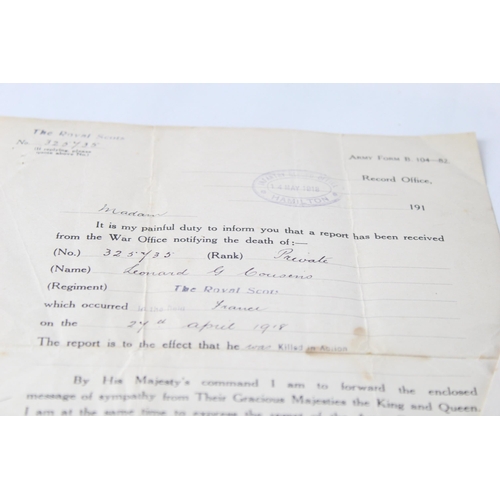 The Royal Scots
No. 325735
(If replying please
quote above No.)
ARMY FORM B. 104—82.
Record Office,
HAMILTON
191
Madam
It is my painful duty to inform you that a report has been received
from the War Office notifying the death of:—
(No.) 325735 (Rank) Private
(Name) Leonard G Cousens
(Regiment) The Royal Scots
which occurred in the field France
on the 24th April 1918
The report is to the effect that he was Killed in Action
By His Majesty's command I am to forward the enclosed
message of sympathy from Their Gracious Majesties the King and Queen.
I am at the same time to express the regret of the